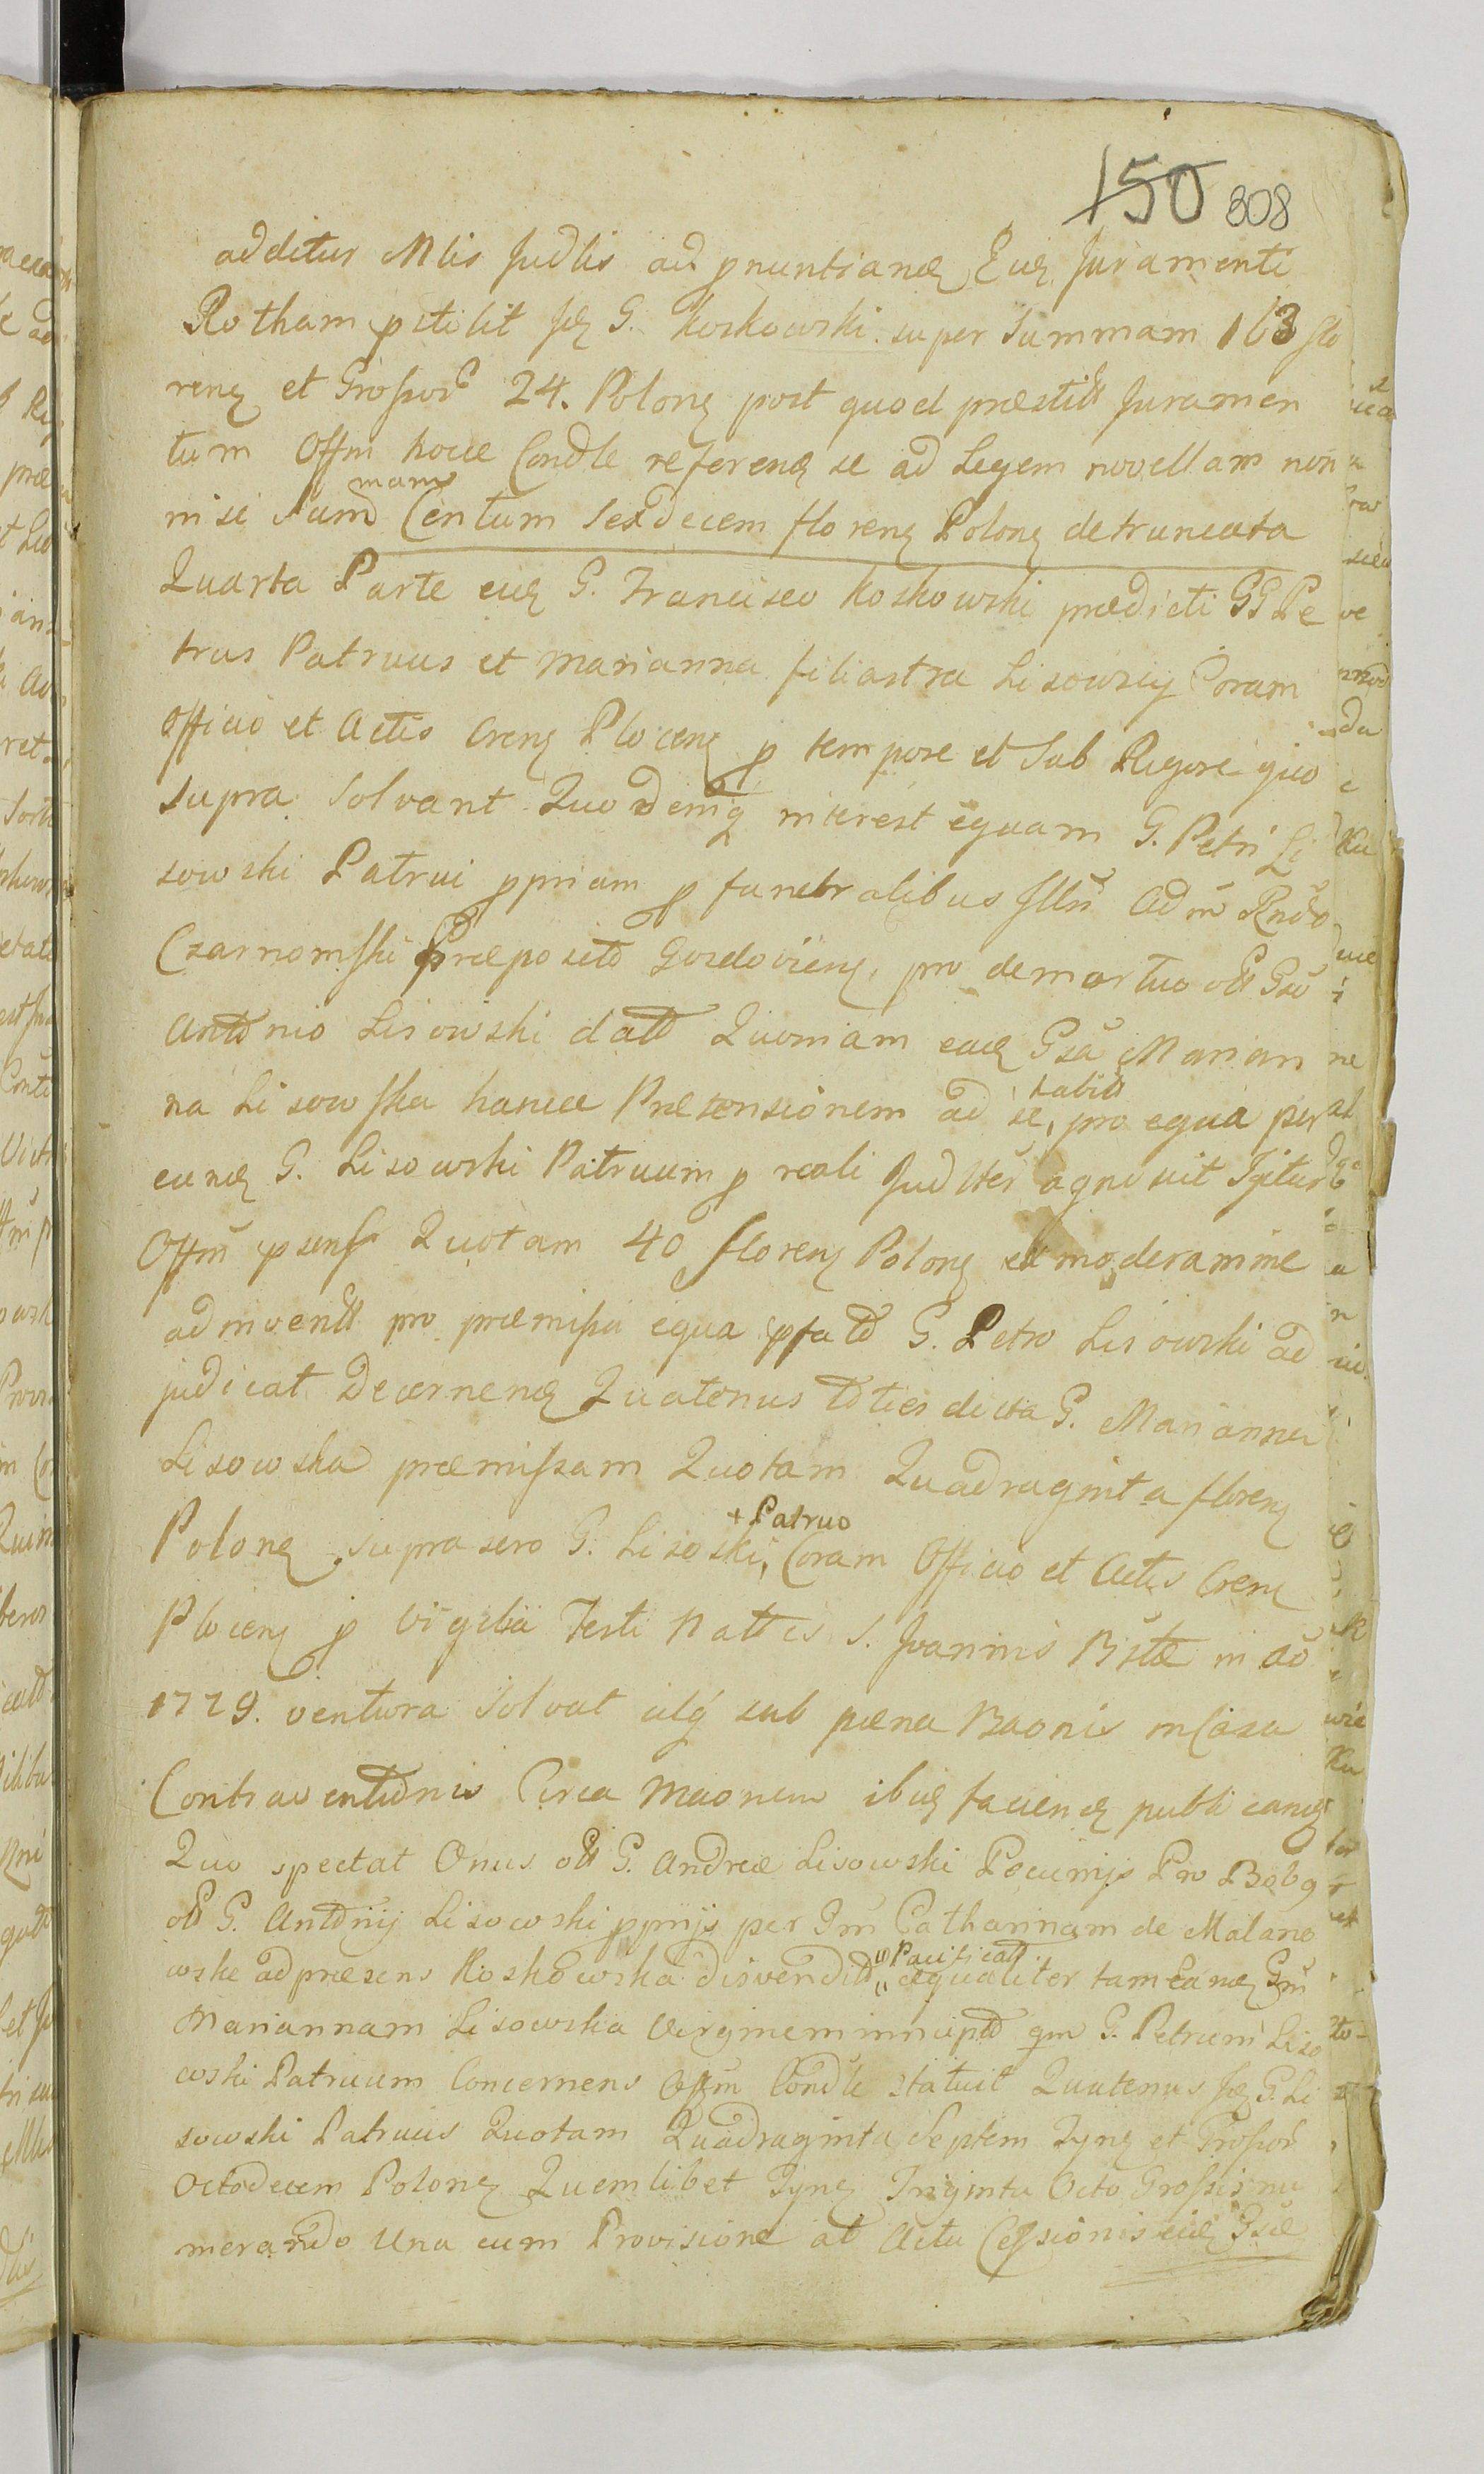 150 308
additur Mlis Judlis ad pnuntianq Euq Juramenti
Rotham pstitit Jq G. Koskowski super Summam 163 flo
renq et Grossor 24. Polonq post quod præstitt Juramen
tum Offm hocce Condle referenq se ad Legem novellam non
nisi Sum̃ mam Centum Sexdecem florenq Polonq detruncata
Quarta Parte euq G. Francisco Koskowski prædicti GG Pe
trus Patruus et Marianna filiastra Lisowscy Coram
Officio et Actis Crenq Plocenq p tempore et Sub Rigore quo
supra Solvant Quod deniq interest equam G. Petri Li
sowski Patrui ppriam p funebralibus Illri Adm̃ Rndo
Czarnomski Præposito Gozdoviens, pro demortuo ott Gso
Antonio Lisowski datt Quoniam eaq Gsa Marian
na Lisowska hancce Prætensionem ad se, habitt pro equa per
eunq G. Lisowski Patruum p reali Judlter agnovit Igitur
Offm̃ psens Quotam 40 florenq Polonq ex moderamine
adinventt pro præmissa equa pfato G. Petro Lisowski ad
judicat Decernenq Quatenus toties dicta G. Marianna
Lisowska præmissam Quotam Quadraginta florenq
Polonq suprasero G. Lisoski, + Patruo Coram Officio et Actis Crenq
Plocenq p Vigilia Festi Nattis S. Joannis Bstæ in ao
1779. ventura Solvat idq sub pæna Baonis in Casu
Contraventionis Circa Maonem ibiq facienq publicanq
Quo spectat Onus ott G. Andreæ Lisowski Pecunijs Pro Bobq
ott G. Antonij Lisowski pprijs per Gm̃ Catharinam de Malano
wskie ad præsens Koskowska disvenditt Pacificatt æqualiter tam Eanq Gm̃
Mariannam Lisowska Virginem innuptt qm G. Petrum Liso
wski Patruum Concernens Offm̃ Condle statuit Quatenus Jq G. Li
sowski Patruus Quotam Quadraginta Septem Tynq et Grossor
Octodecem Polonq Quemlibet Tynq Triginta Octo Grossis nu
merando Una cum Provisione ab Actu Cessionis eiq Gsæ